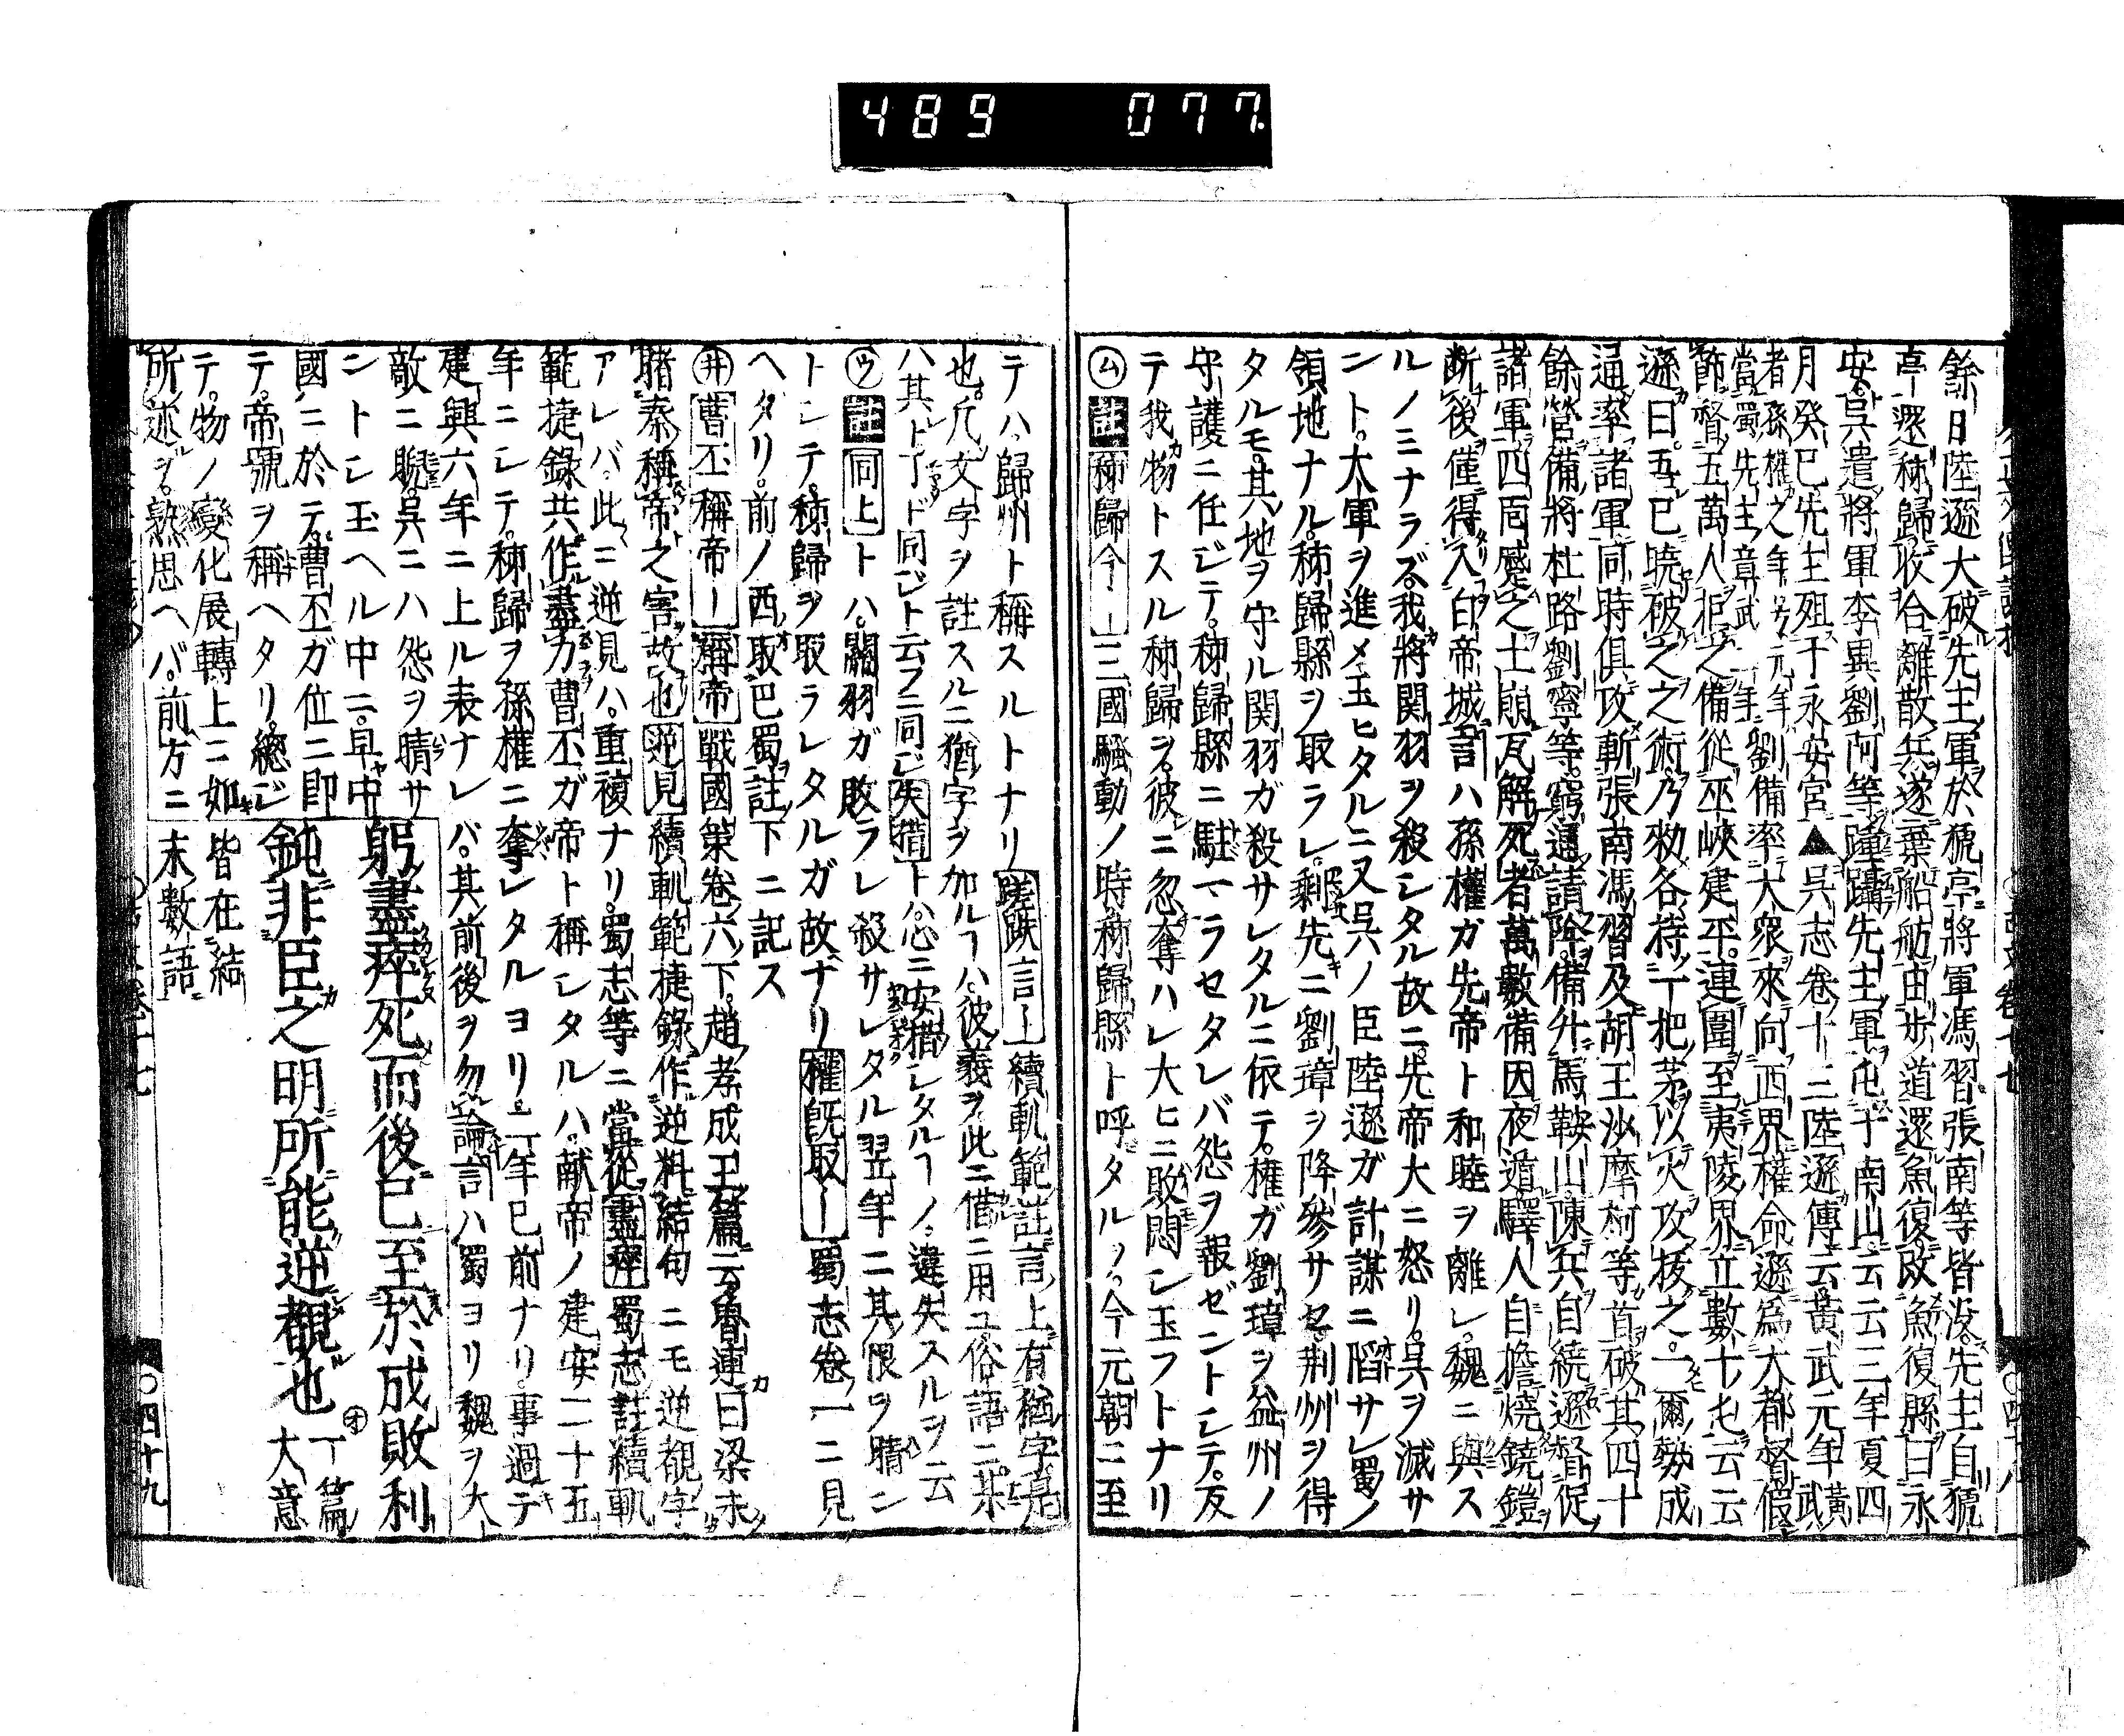 489 077
餘日陸遜大破先主軍於猇亭將軍馮習張南等皆沒先主自猇
亭還秭歸收合離散兵遂棄船舫由步道還魚復改魚復縣曰永
安吳遣將軍李異劉阿等踵躡先主軍屯于南山云云三年夏四
月癸巳先主殂于永安宮▲吳志卷十三陸遜傳云黃武元年
黃武元年劉備率大衆來向西界權命遜爲大都督假
節督五萬人拒之備從巫峽建平連圍至夷陵界立數十屯云云
遜曰吾已曉破之之術乃敕各持一把茅以火攻拔之一爾勢成
通率諸軍同時俱攻斬張南馮習及胡王沙摩柯等首破其四十
餘營備將杜路劉寧等窮逼請降備升馬鞍山陳兵自繞遜督促
諸軍四面蹙之土崩瓦解死者萬數備因夜遁驛人自擔燒鐃鎧
斷後僅得入白帝城言ハ孫權ガ先帝ト和睦ヲ離レ魏ニ與ス
ルノミナラズ我將関羽ヲ殺シタル故ニ先帝大ニ怒リ吳ヲ滅サ
ント大軍ヲ進メ玉ヒタルニ又吳ノ臣陸遜ガ計謀ニ陷サレ蜀ノ
領地ナル秭歸縣ヲ取ラレ剰先ニ劉璋ヲ降參サセ荆州ヲ得
タルモ其地ヲ守ル関羽ガ殺サレタルニ依テ權ガ劉璋ヲ益州ノ
守護ニ任ジテ秭歸縣ニ駐マラセタレバ怨ヲ報ゼントシテ反
テ我物トスル秭歸ヲ彼ニ忽奪ハレ大ヒニ敗悶シ玉フトナリ
㋰註秭歸今ー三國騷動ノ時秭歸縣ト呼タルノ今元朝ニ至
テハ歸州ト稱スルトナリ蹉跌言ー續軌範註言上有猶字是
也凡文字ヲ註スルニ猶字ヲ加ルヿハ彼義ヲ此ニ借ニ用ユ俗語ニ某
ハ其ト丁ド同ジト云フニ同ジ失措トハ心ニ安措シタルヿノ違失スルヲ云
㋒註同上トハ關羽ガ敗ラレ殺サレタル翌年ニ其恨ヲ晴シ
トシテ秭歸ヲ取ラレタルガ故ナリ權既取ー蜀志卷一ニ見
ヘタリ前ノ西取巴蜀註下ニ記ス
㋼曹丕稱帝ー稱帝戰國策卷六下趙孝成王篇云魯連曰梁未
睹秦稱帝之害故也逆見續軌範捷錄作逆料結句ニモ逆覩字
アレバ此ニ逆見ハ重複ナリ蜀志等ニ當從盡瘁蜀志註續軌
範捷錄共作盡力曹丕ガ帝ト稱シタルハ献帝ノ建安二十五
年ニシテ秭歸ヲ孫權ニ奪レタルヨリ二年已前ナリ事過テ
建興六年ニ上ル表ナレバ其前後ヲ勿論言ハ蜀ヨリ魏ヲ大
敵ニ睨吳ニハ怨ヲ晴サ
ントシ玉ヘル中ニ早中
國ニ於テ曹丕ガ位ニ即
テ帝號ヲ稱ヘタリ總ジ
テ物ノ變化展轉上ニ如
所述ヲ熟思ヘバ前方ニ
躬盡瘁死而後已至於成敗利
鈍非臣之明所能逆覩也㋔丁篇大意
皆在結
末數語
○四十九